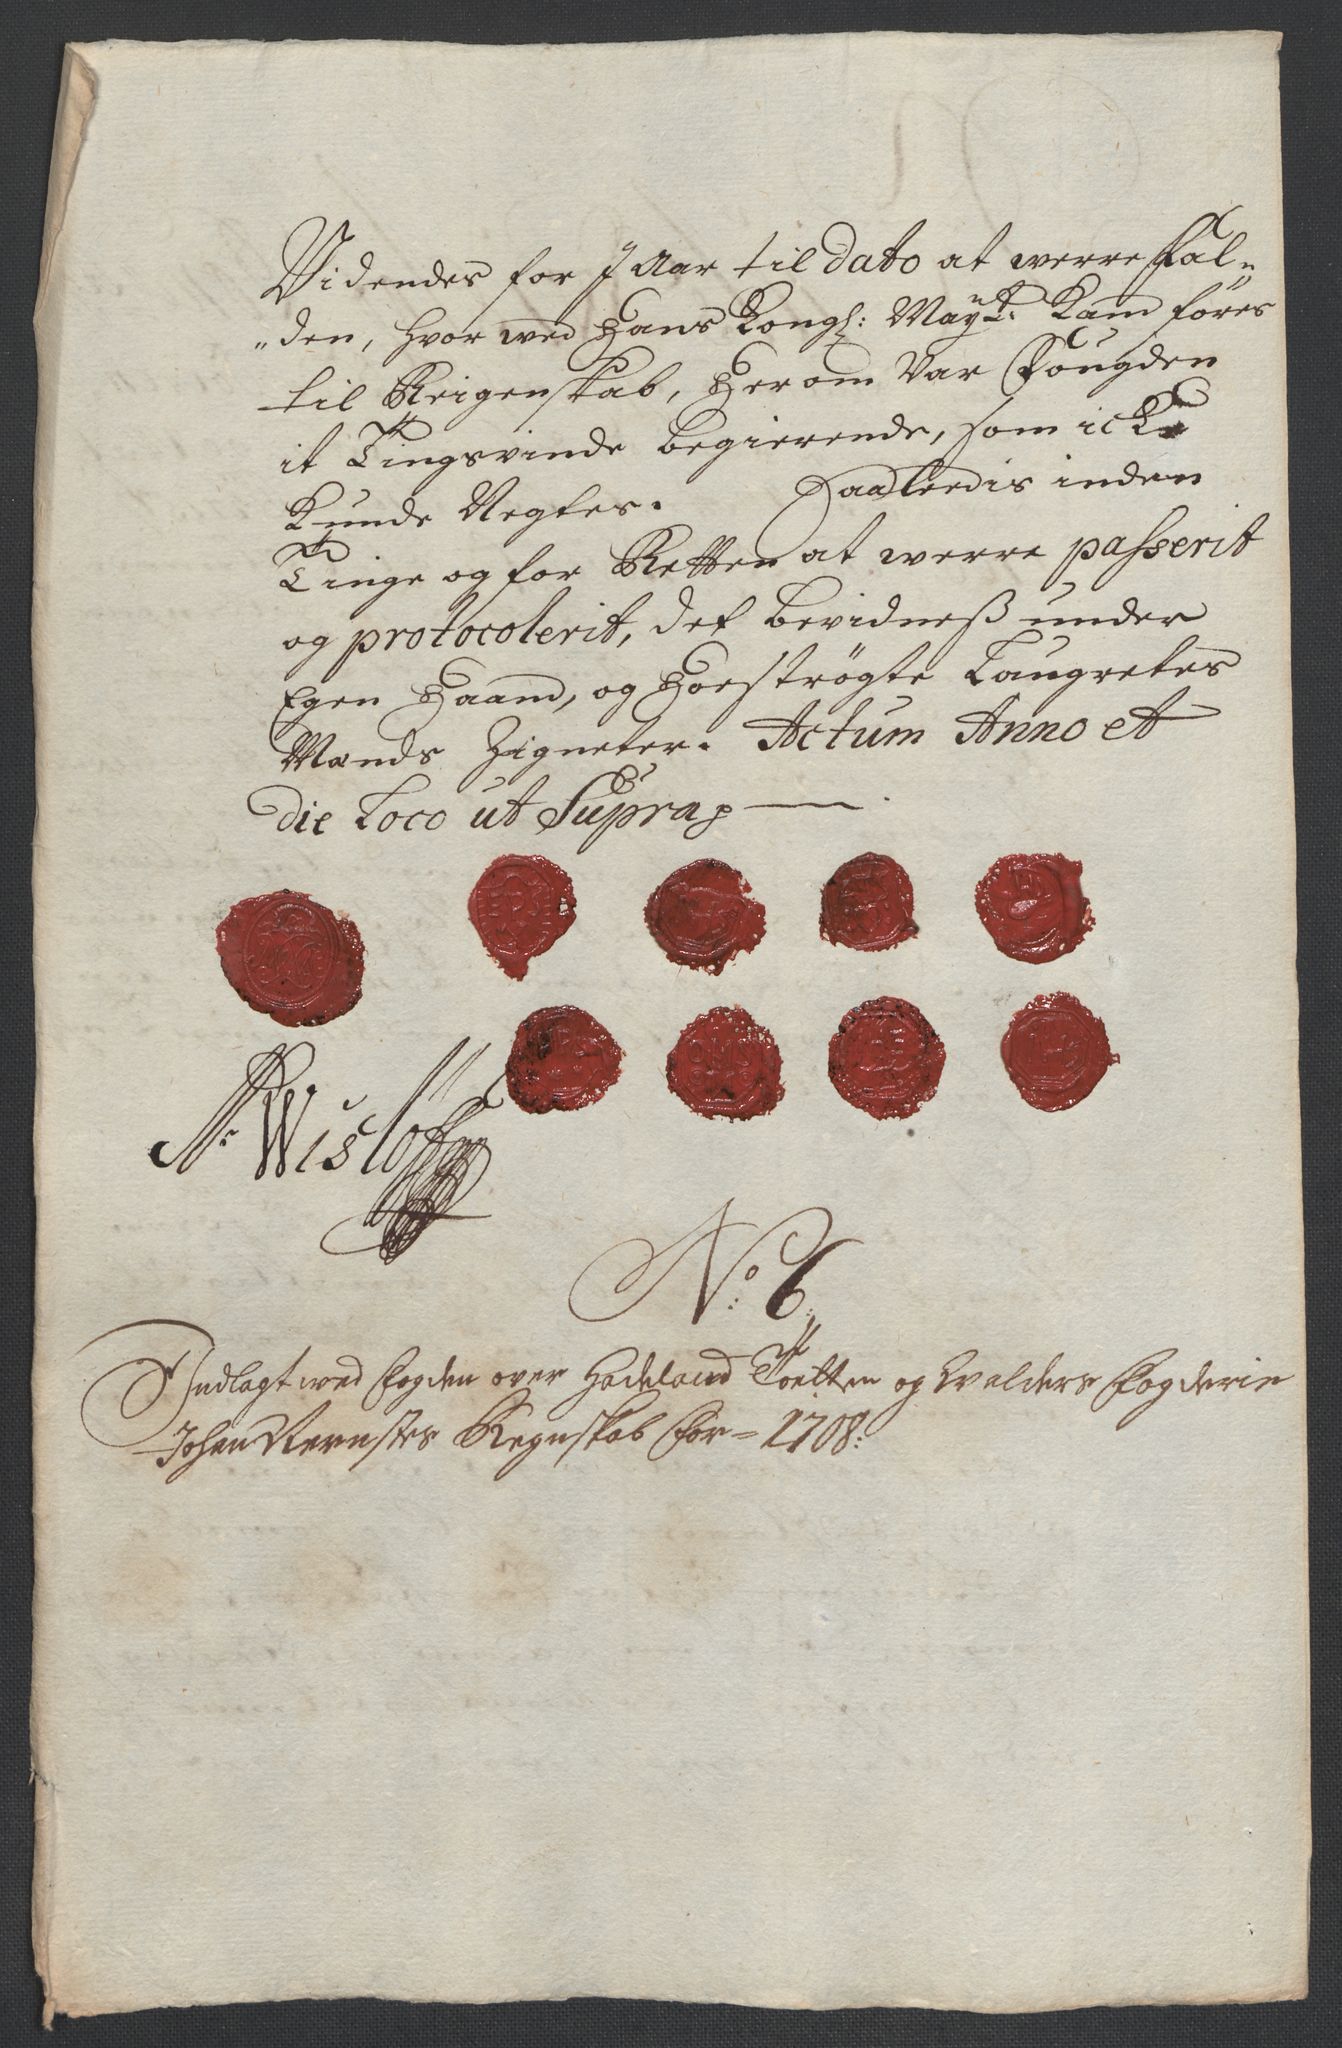 Videndes for J Aar til dato at werre Fal„
„den, hvor wed Hans Kongl: Maytt: Kand föres
til Reigenskab, Herom Var Fougden
it Tingsvinde begierende, som icke
Kunde Negtes. Saaledis inden
Tinge og for Retten at werre passerit
og protocolerit, det bevidneß under
Egen Haand, og Hoeströgte Laugretes
Mænds Zigneter. Actum Anno et
die Loco ut Supra
Wisloff
No: 6:
Indlagt wed Fogden over Hadeland Toetten og Walders Fogderie
Johan Rernstes Regnskab for 1708: